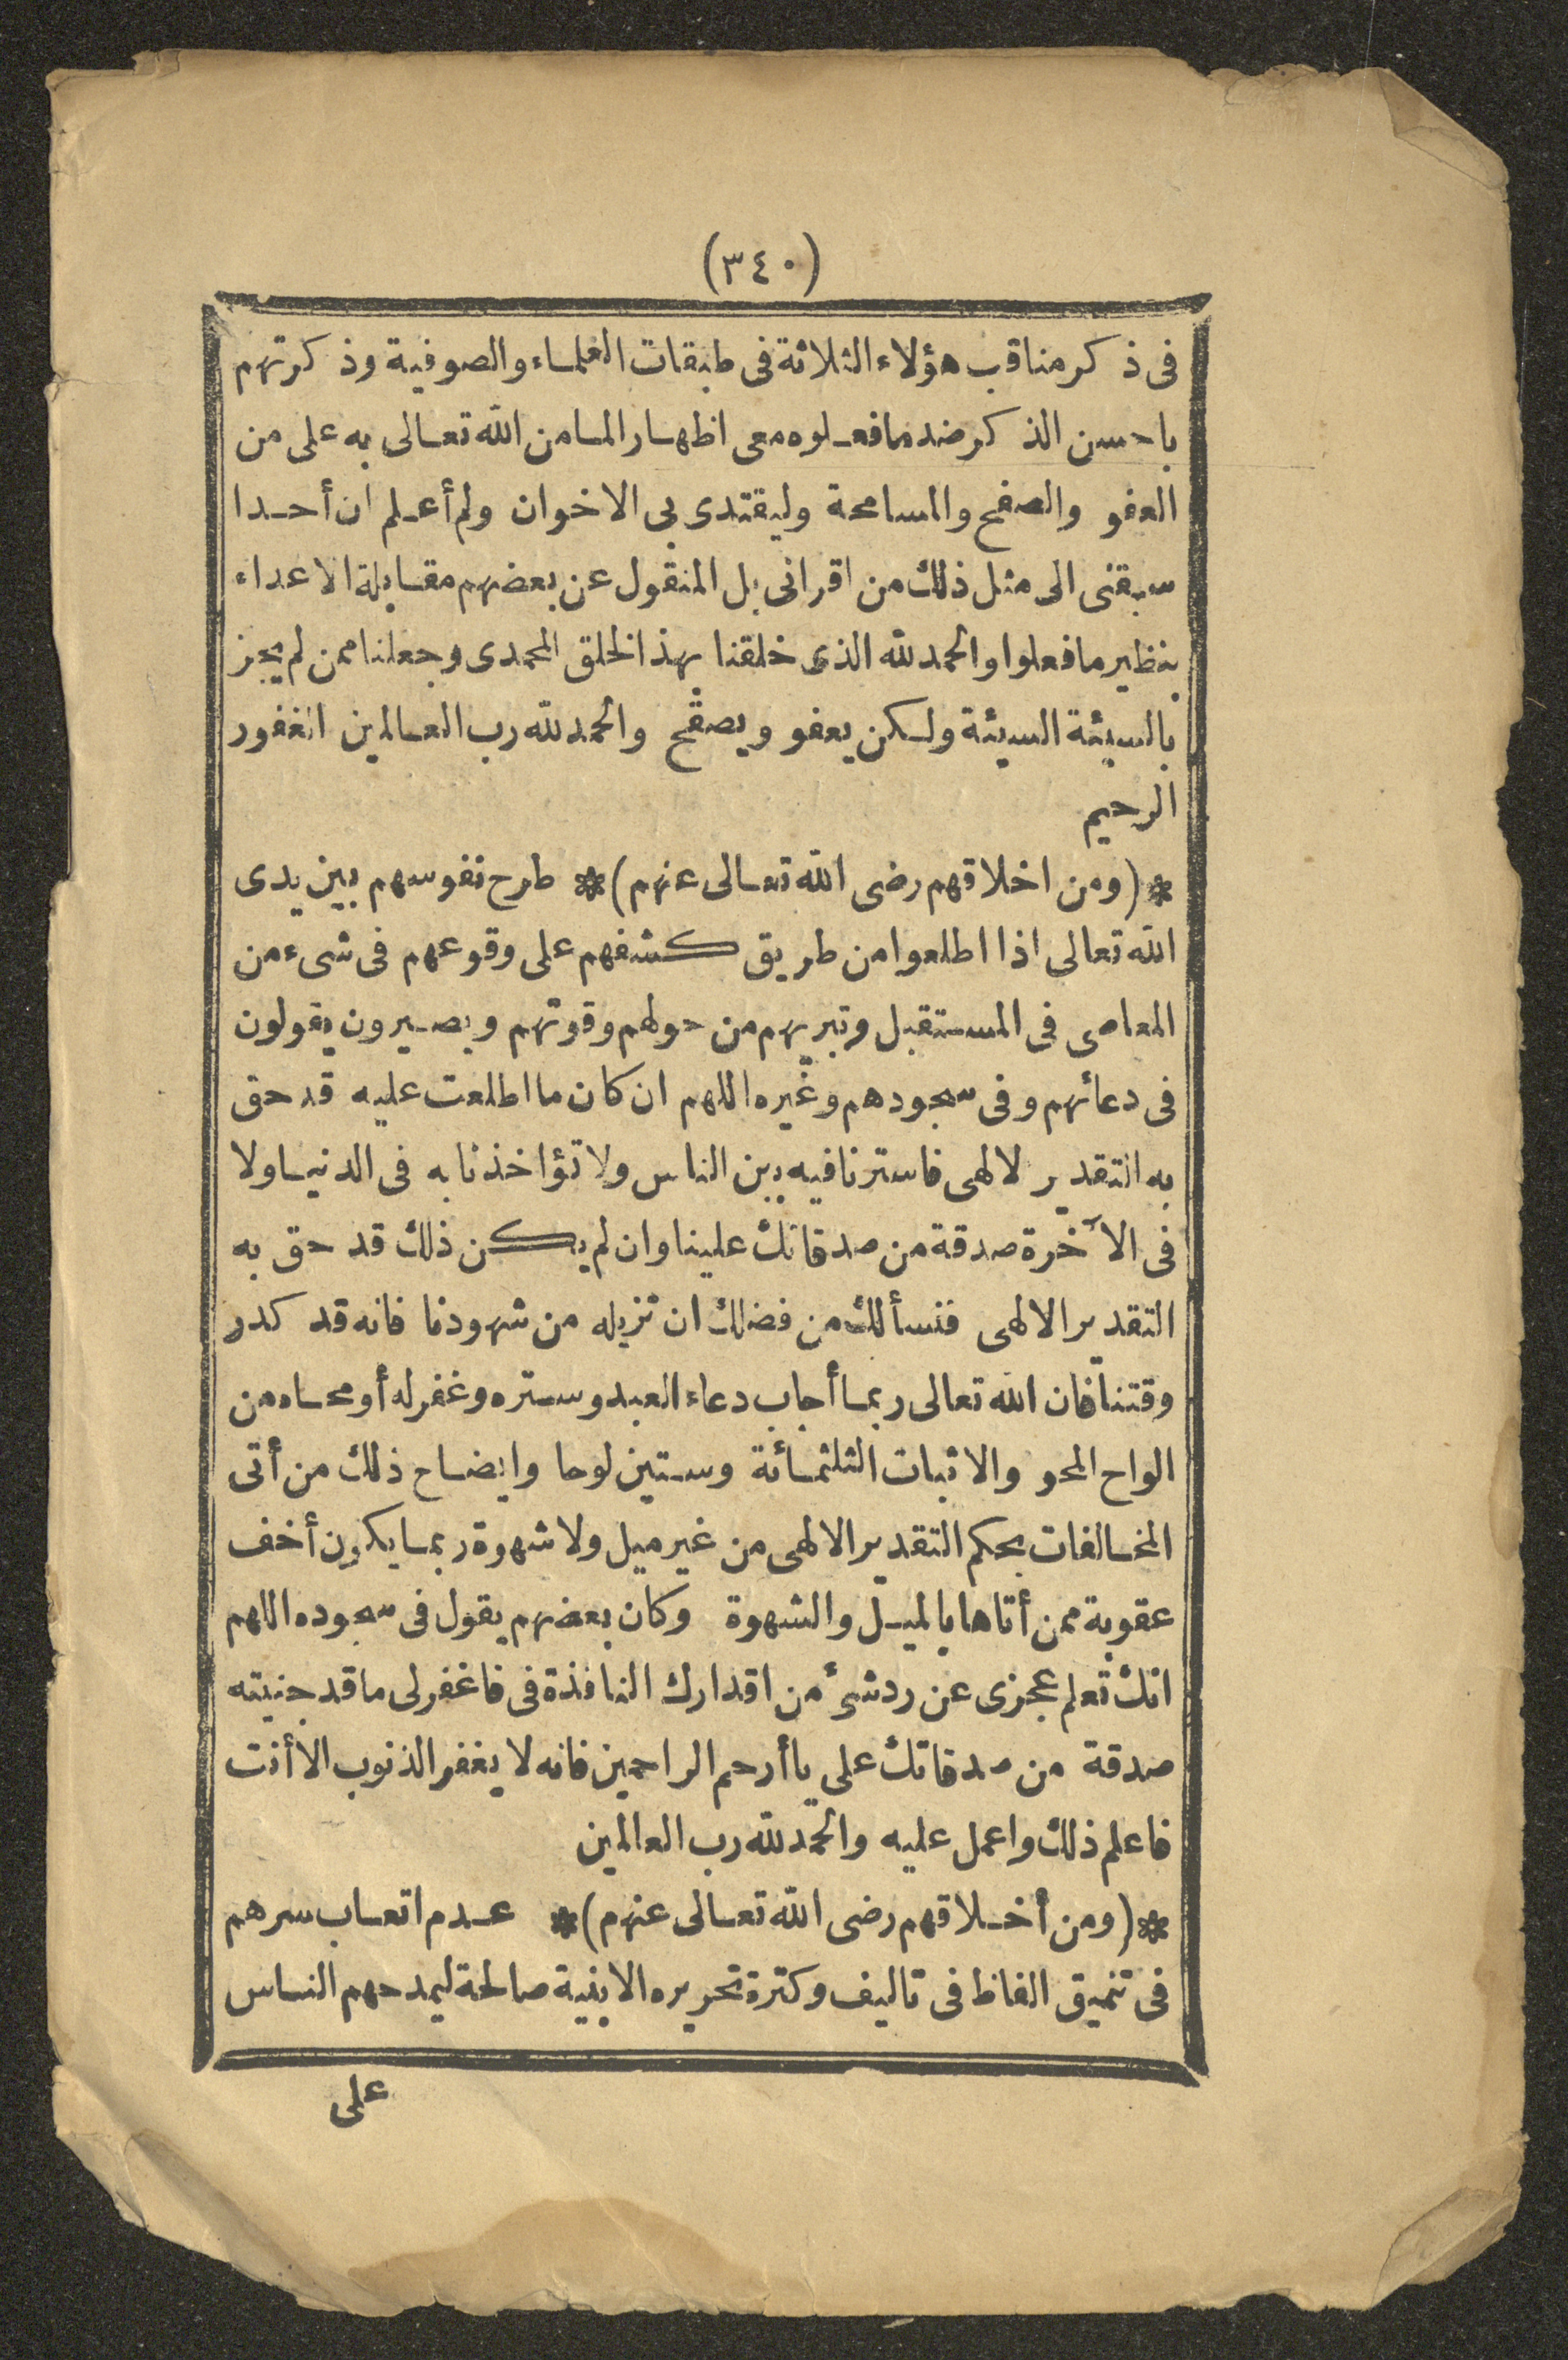 (٣٤٠)
فى ذكر مناقب هؤلاء الثلاثة فى طبقات العلماء والصوفية وذكرتهم
باحسن الذكر ضد ما فعلوه معى اظهارا لما من الله تعالى به على من
العفو والصفح والمسامحة وليقتدى بى الاخوان ولم أعلم ان أحدا
سبقنى الى مثل ذلك من اقرانى بل المنقول عن بعضهم مقابلة الاعداء
بنظير ما فعلوا والحمد لله الذى خلقنا بهذا الخلق المحمدى وجعلنا ممن لم يجز
بالسيئة السيئة ولكن يعفو ويصفح والحمد لله رب العالمين الغفور
الرحيم
* (ومن اخلاقهم رضى الله تعالى عنهم) * طرح نفوسهم بين يدى
الله تعالى اذا اطلعوا من طريق كشفهم على وقوعهم فى شىء من
المعاصى فى المستقبل وتبريهم من حولهم وقوتهم ويصيرون يقولون
فى دعائهم وفى سجودهم وغيره اللهم ان كان ما اطلعت عليه قد حق
به التقدير لالهى فاسترنا فيه بين الناس ولا تؤاخذنا به فى الدنيا ولا
فى الآخرة صدقة من صدقاتك علينا وان لم يكن ذلك قد حق به
التقدير الالهى فنسألك من فضلك ان تزيله من شهودنا فانه قد كدر
وقتنا فان الله تعالى ربما أجاب دعاء العبد وستره وغفر له أو محاه من
الواح المحو والاثبات الثلثمائة وستين لوحا وايضاح ذلك من أتى
المخالفات بحكم التقدير الالهى من غير ميل ولا شهوة ربما يكون أخف
عقوبة ممن أتاها بالميل والشهوة وكان بعضهم يقول فى سجوده اللهم
انك تعلم عجزى عن رد شئ من اقدارك النافذة فى فاغفر لى ما قد جنيته
صدقة من صدقاتك على يا أرحم الراحمين فانه لا يغفر الذنوب الا أنت
فاعلم ذلك واعمل عليه والحمد لله رب العالمين
* (ومن أخلاقهم رضى الله تعالى عنهم) * عدم اتعاب سرهم
فى تنميق الفاظ فى تاليف وكثرة تحريره الابنية صالحة ليمدحهم الناس
على